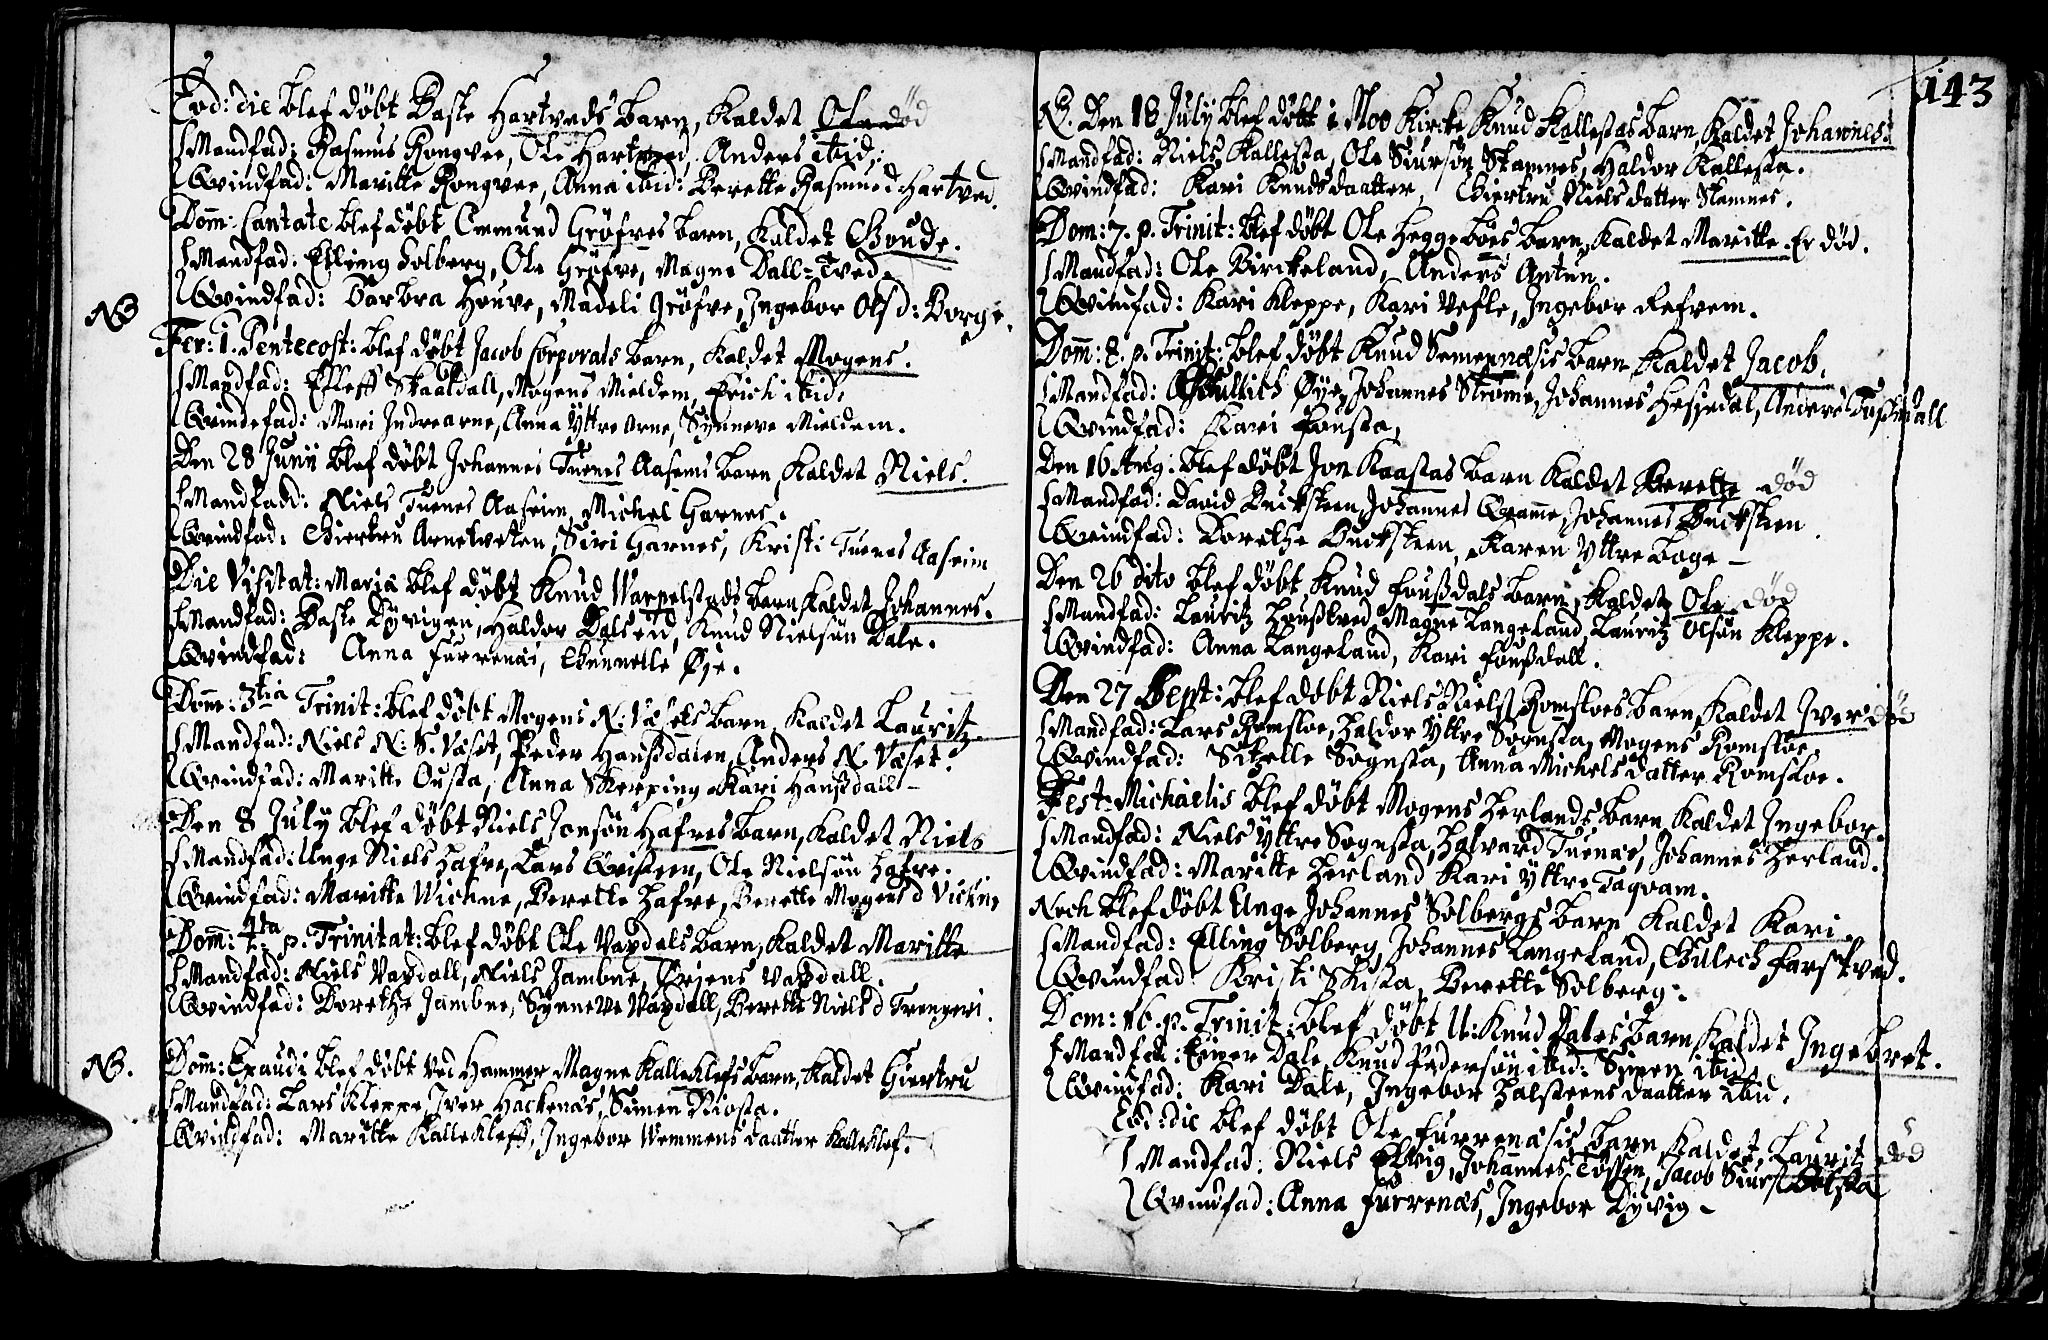 Eod: die blef døbt Baste Hartveds barn, kaldet Ole død
Mandfad: Rasmus Rongvee, Ole Hartved, Anders ibid:
Qvindfad: Maritte Rongvee, Anna ibid: Berette Rasmus d: Hartved.
Dom̅: Cantate blef døbt Emmund Grøfres barn, Kaldet Goude.
Mandfad: Elling Solberg, Ole Grøfve, Magne Dall-Tved.
Qvindfad: Barbra Houve, Madeli Grøfve, Ingebor Ols d: Borge.
NB
Fer: 1. Pentecost: blef døbt Jacob Corporals barn, Kaldet Mogens.
Mandfad: Elleff Skaaldall, Mogens Mieldem, Erich ibid:
Qvindefad: Mari Indrearne, Anna Yttre Arne, Synneve Mieldem.
Den 28 Junii blef døbt Johannes Tuenes Aasems barn Kaldet Niels.
Mandfadd: Niels Tuenes Aaseim, Michel Garnes.
Qvindfad: Giertru Arnetveten, Siri Garnes, Kristi Tuenes Aaseim
Die Visitat: Mariæ blef døbt Knud Warpelstads barn kaldet Johannes.
Mandfad: Baste Dyvigen, Haldor Dalseid, Knud Nielsøn Dale.
Qvindfad: Anna Furrenæs, Gunnelle Øye.
Dom̅: 3tia Trinit: blef døbt Mogens N: Væsets barn Kaldet Lauritz.
Mandfad: Niels N: S. Væset, Peder Hanssdalen, Anders N. Væset.
Qvindfad: Maritte Ousta, Anna Skerping Kari Hanssdall-
Den 8 July blef døbt Niels Jonsøn Hafres barn, Kaldet Niels
Mandfad: Unge Niels Hafre, Lars Qvisteen, Ole Nielsøn Hafre.
Qvindfad: Maritte Wichne, Berette Hafre, Berette Mogens d Vichne
Dom̅: 4ta p. Trinitat: blef døbt Ole Vaxdals barn, kaldet Maritte
Mandfad: Niels Vaxdall, Niels Jambne, Ørjens Vaxdall.
Qvindfad: Dorethe Jambne, Synneve Vaxdall, Berette Niels d Trengeri.
NB.
Dom̅: Exaudi blef døbt ved Hammer Magne Kalleklefs barn, kaldet Giertru
Mandfad: Lars Kleppe, Iver Hackenæs, Simen Riosta.
Qvindfad: Maritte Kallekleff, Ingebor Wemmens daatter Kalleklef.
143
NB. Den 18 July blef døbt i Moo Kircke Knud Kallestas barn, Kaldet Johannes.
Mandfad: Niels Kallesta, Ole Siursøn Stamnes, Haldor Kallesta.
Qvindfad: Kari Knudsdaatter, Giertru Niels datter Stamnes.
Dom: 7. p. Trinit: blef døbt Ole Heggebøes barn, Kaldet Maritte. Er død.
Mandfad: Ole Birckeland, Anders Antun.
Qvindfad: Kari Kleppe, Kari Vefle, Ingebor Refrem.
Dom̅: 8. p. Trinit: blef døbt Knud Semennæsis barn Kaldet Jacob.
Mandfad: Øye, Johannes Strøme, Johannes Hesjedal, Anders Fossdall
Qvindfad: Kari Fonsta,
Den 16 Aug: blef døbt Jon Kaastas barn Kaldet Berette død
Mandfad: David Bucksteen, Johannes Qvamme, Johannes Bucksteen
Qvindfad: Dorethe Bucksteen, Karen Yttre Bage-
Den 26 dito blef døbt Knud Fonssdals barn, kaldet Ole død
Mandfad: Lauritz Honsstved, Magne Langeland, Lauritz Olsøn Kleppe.
Qvindfad: Anna Langeland, Kari Fonssdall.
Den 27 Sept: blef døbt Niels Niels: Romsloes barn, Kaldet Iver død
Mandfad: Lars Romsloe, Haldor Yttre Sognsta, Mogens Romsloe,
Qvindfad: Sitzelle Sognsta, Anna Michels datter Romsloe.
Fest: Michaelis blef døbt Mogens Herlands barn Kaldet Ingebor.
Mandfad: Niels Yttre Sognsta, Halvard Tuenæs, Johannes Herland.
Qvindfad: Maritte Herland Kari Yttre Tagvam.
Noch blef døbt Unge Johannes Solbergs barn Kaldet Kari.
Mandfad: Elling Solberg, Johannes Langeland, Gulech Farstved.
Qvindfad: Kristi Skista, Berette Solberg.
Dom: 16. p. Trinit: blef døbt U: Knud Dales barn, Kaldet Ingebret.
Mandfad: Einer Dale, Knud Pedersøn ibid: Simen ibid:
Qvindfad: Kari Dale, Ingebor Halsteens daatter ibid.
Eod: die blef døbt Ole Furrenæsis barn, Kaldet, Laurit død
Mandfad: Niels Elvig, Johannes Tøssen, Jacob Siurs:
Qvindfad: Anna Furrenæs, Ingebor Dyvig-